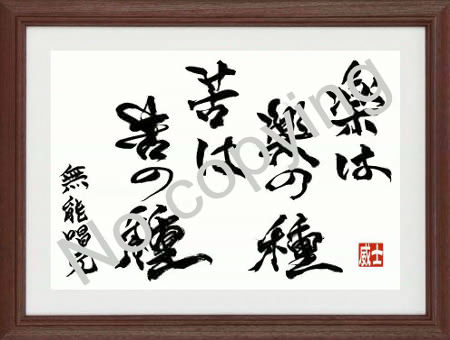 楽は
楽の種
苦は
苦の種
無能唱元
威士
No copying